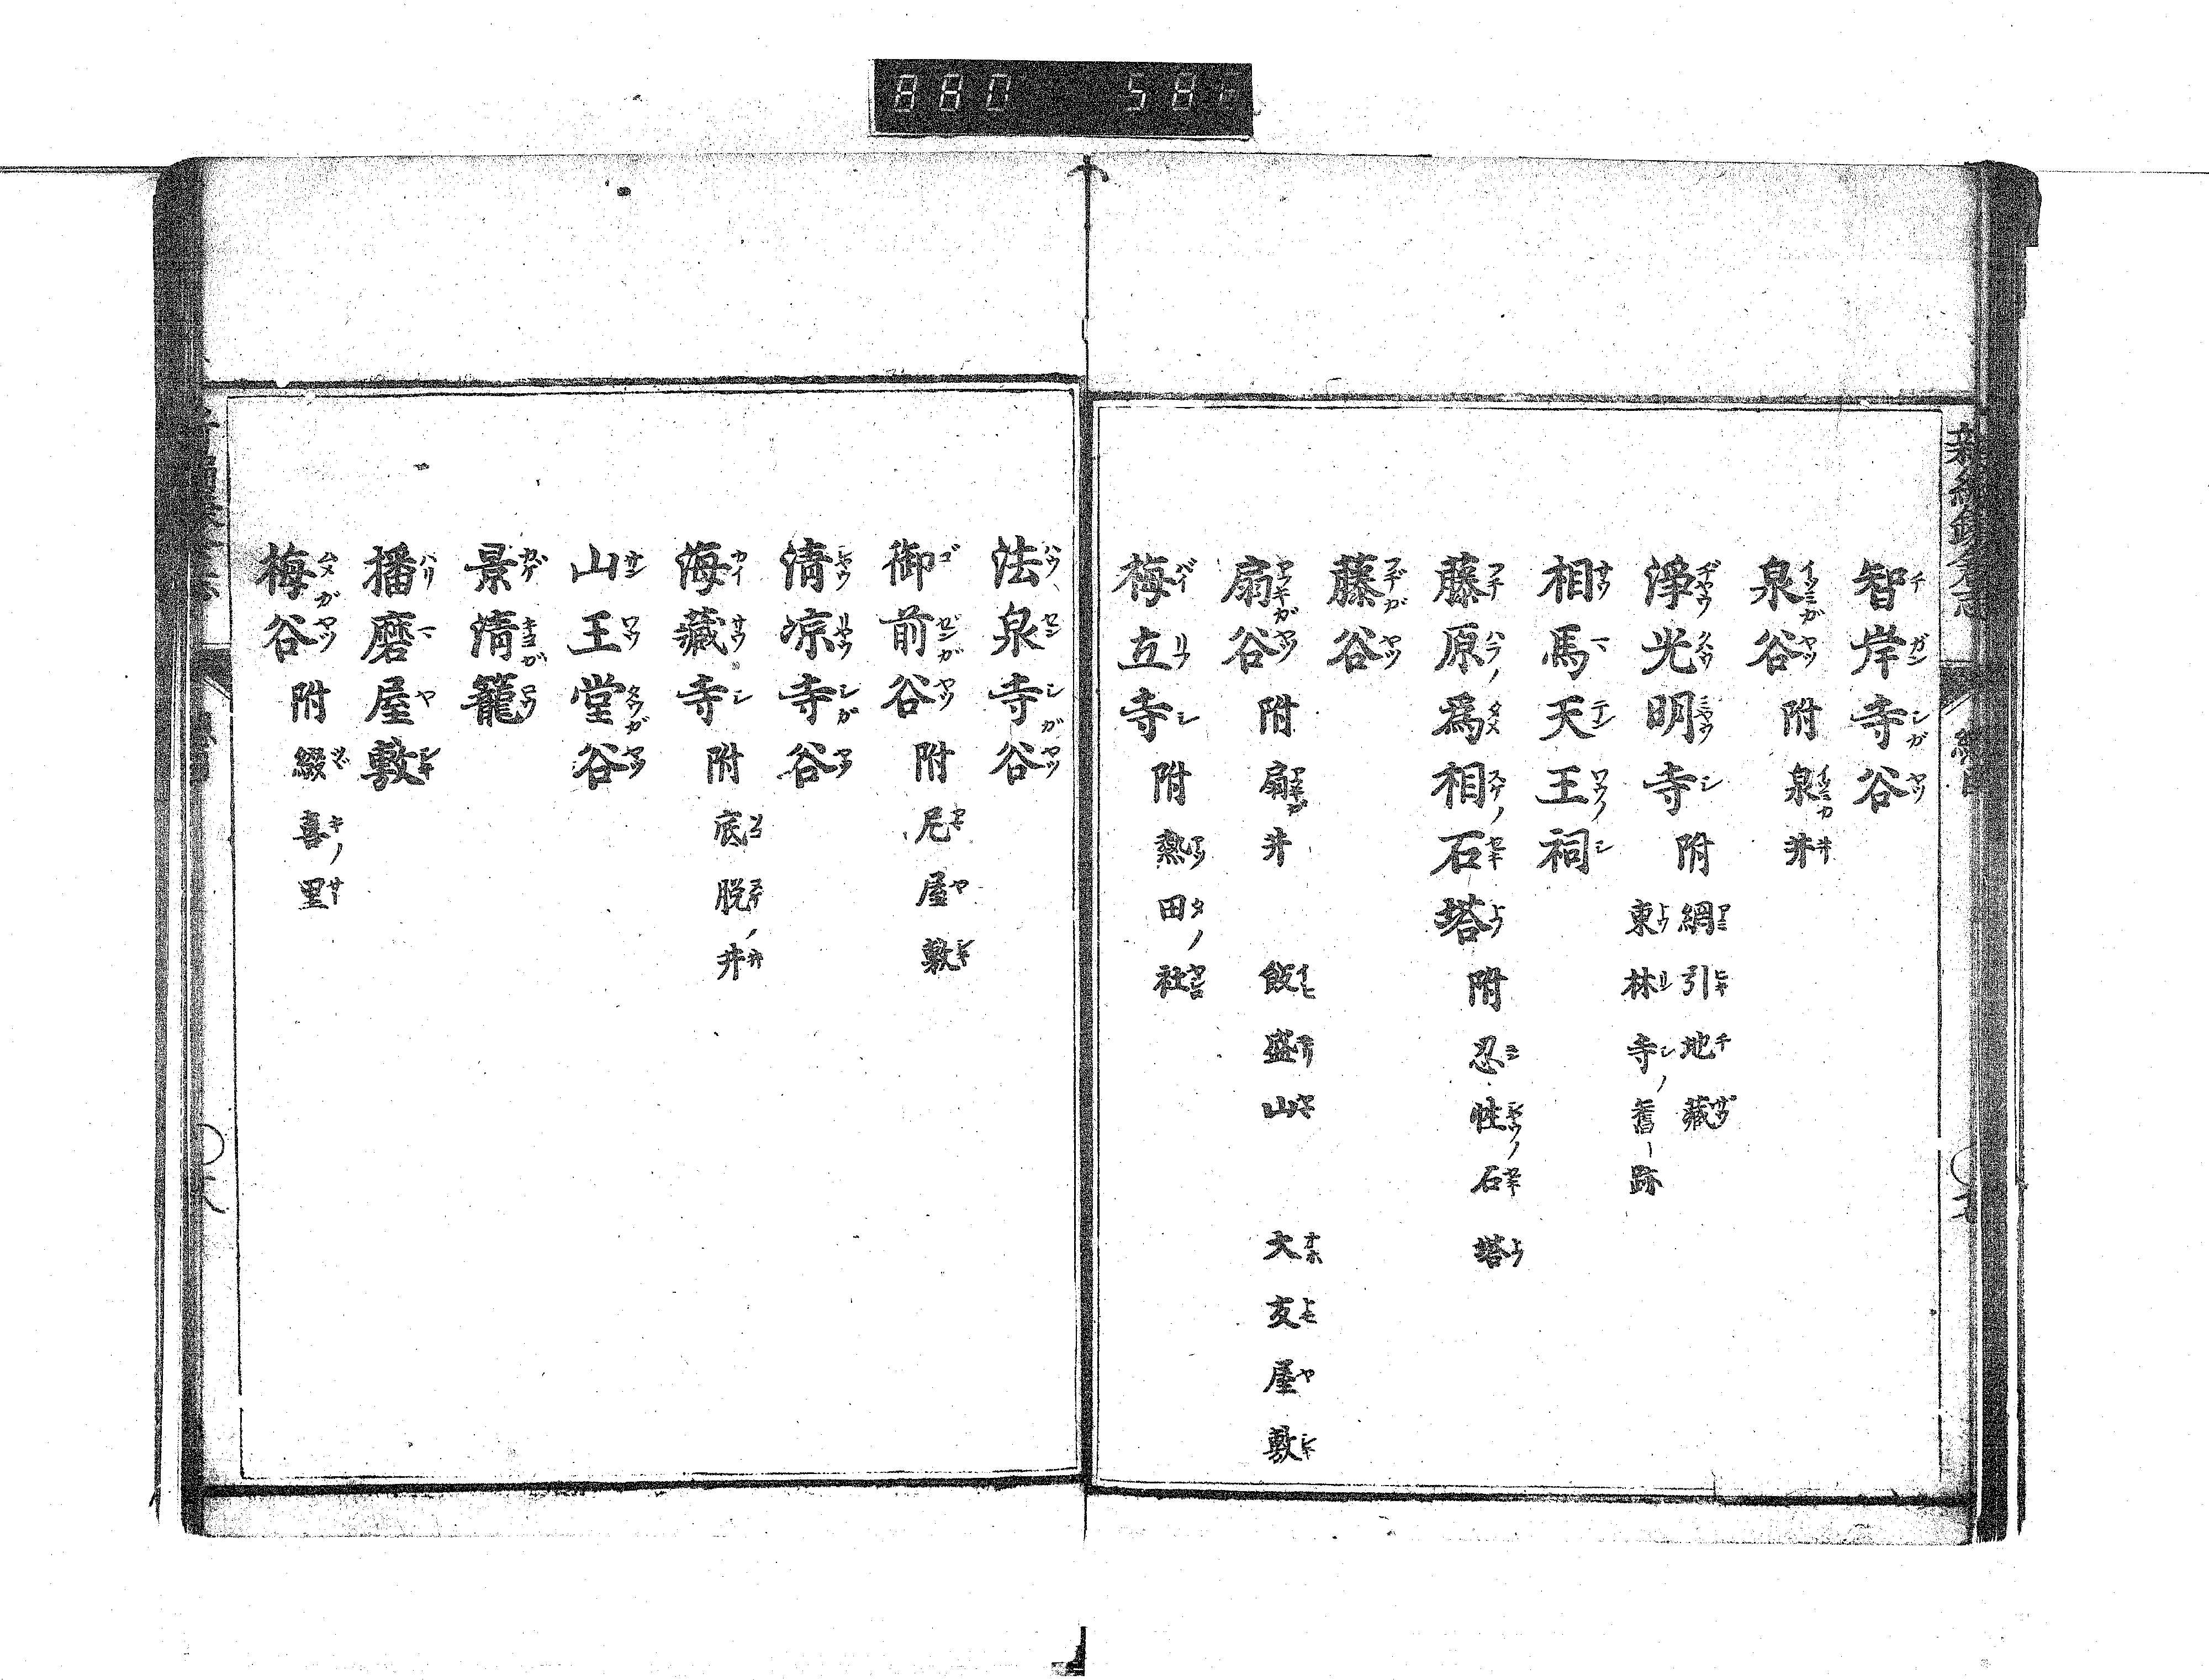 880 58
新編鎌倉志
智岸寺谷
泉谷 附 泉井
淨光明寺 附 綱引地藏
東林寺ノ舊跡
相馬天王祠
藤原爲相石塔 附 忍性ノ石塔
藤谷
扇谷 附 扇井 飯盛山 大友屋敷
梅立寺 附 熱田ノ社
法泉寺谷
御前谷 附 尼屋敷
淸凉寺谷
海藏寺 附 底脱ノ井
山王堂谷
景淸籠
播磨屋敷
梅谷 附 綴喜ノ里